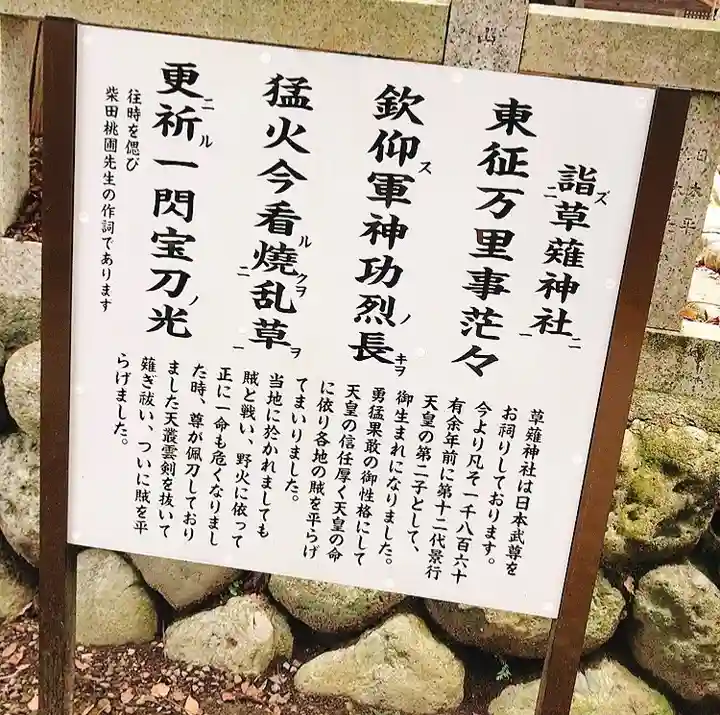 詣ズ二草薙神社ニ一
東征万里事茫々
欽仰ス軍神功烈ノ長キヲ
猛火今看ル二燒クヲ乱草ヲ一
更ニ祈ル一閃宝刀ノ光
往時を偲び
柴田桃圃先生の作詞であります
草薙神社は日本武尊を
お祠りしております。
今より凡そ一千八百六十
有余年前に第十二代景行
天皇の第二子として、
御生まれになりました。
勇猛果敢の御性格にして
天皇の信任厚く天皇の命
に依り各地の賊を平らげ
てまいりました。
当地に於かれましても
賊と戦い、野火に依って
正に一命も危くなりまし
た時、尊が佩刀しており
ました天叢雲剣を抜いて
薙ぎ祓い、ついに賊を平
らげました。